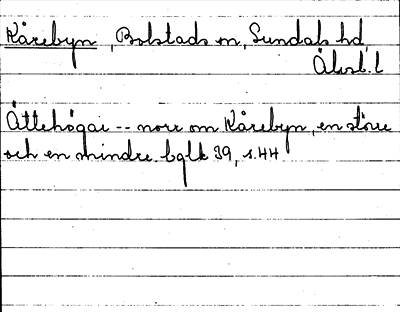 Kårebyn, Bolstads sn, Sundals hd,
Älvsb. l
Ättehögar -- norr om Kårebyn, en större
och en mindre. bqlk 39, s.44